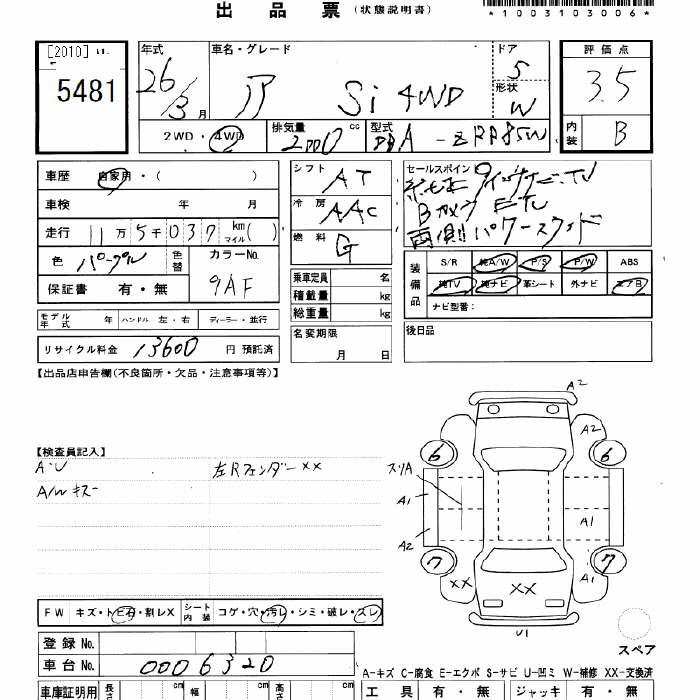 出品票 (状態説明書) *1003103006*
[2010]
5481
年式 車名・グレード ドア 評価点
26/3月 Si 4WD 5 3.5
形状 W
2WD・4WD 排気量 2000 cc 型式 DBA-ZRR85W 内装 B
車歴 自家用・( )
車検 年 月
走行 11万5千037 km マイル( )
色 パープル 色替 カラーNo. 9AF
保証書 有・無
シフト AT
冷房 AAC
燃料 G
乗車定員 名
積載量 kg
総重量 kg
セールスポイント
Bカメラ ETC
両側パワースライド
装備品 S/R 純A/W P/S P/W ABS
純TV 純ナビ 革シート 外ナビ エアB
ナビ型番:
モデル年式 年 ハンドル 左・右 ディーラー・並行
リサイクル料金 13600 円 預託済
名変期限 月 日
後日品
【出品店申告欄(不良箇所・欠品・注意事項等)】
A2
A2
6 6
【検査員記入】
A・U 左Rフェンダー××
A/Wキズ
スリA
A1 A1
A2
7 7
×× ×× A1
U1
スペア
FW キズ・トビ石・割レX シート内装 コゲ・穴・汚レ・シミ・破レ・スレ
登録No.
車台No. 0006320
A-キズ C-腐食 E-エクボ S-サビ U-凹ミ W-補修 XX-交換済
車庫証明用 長さ cm 幅 cm 高さ cm 工具 有・無 ジャッキ 有・無